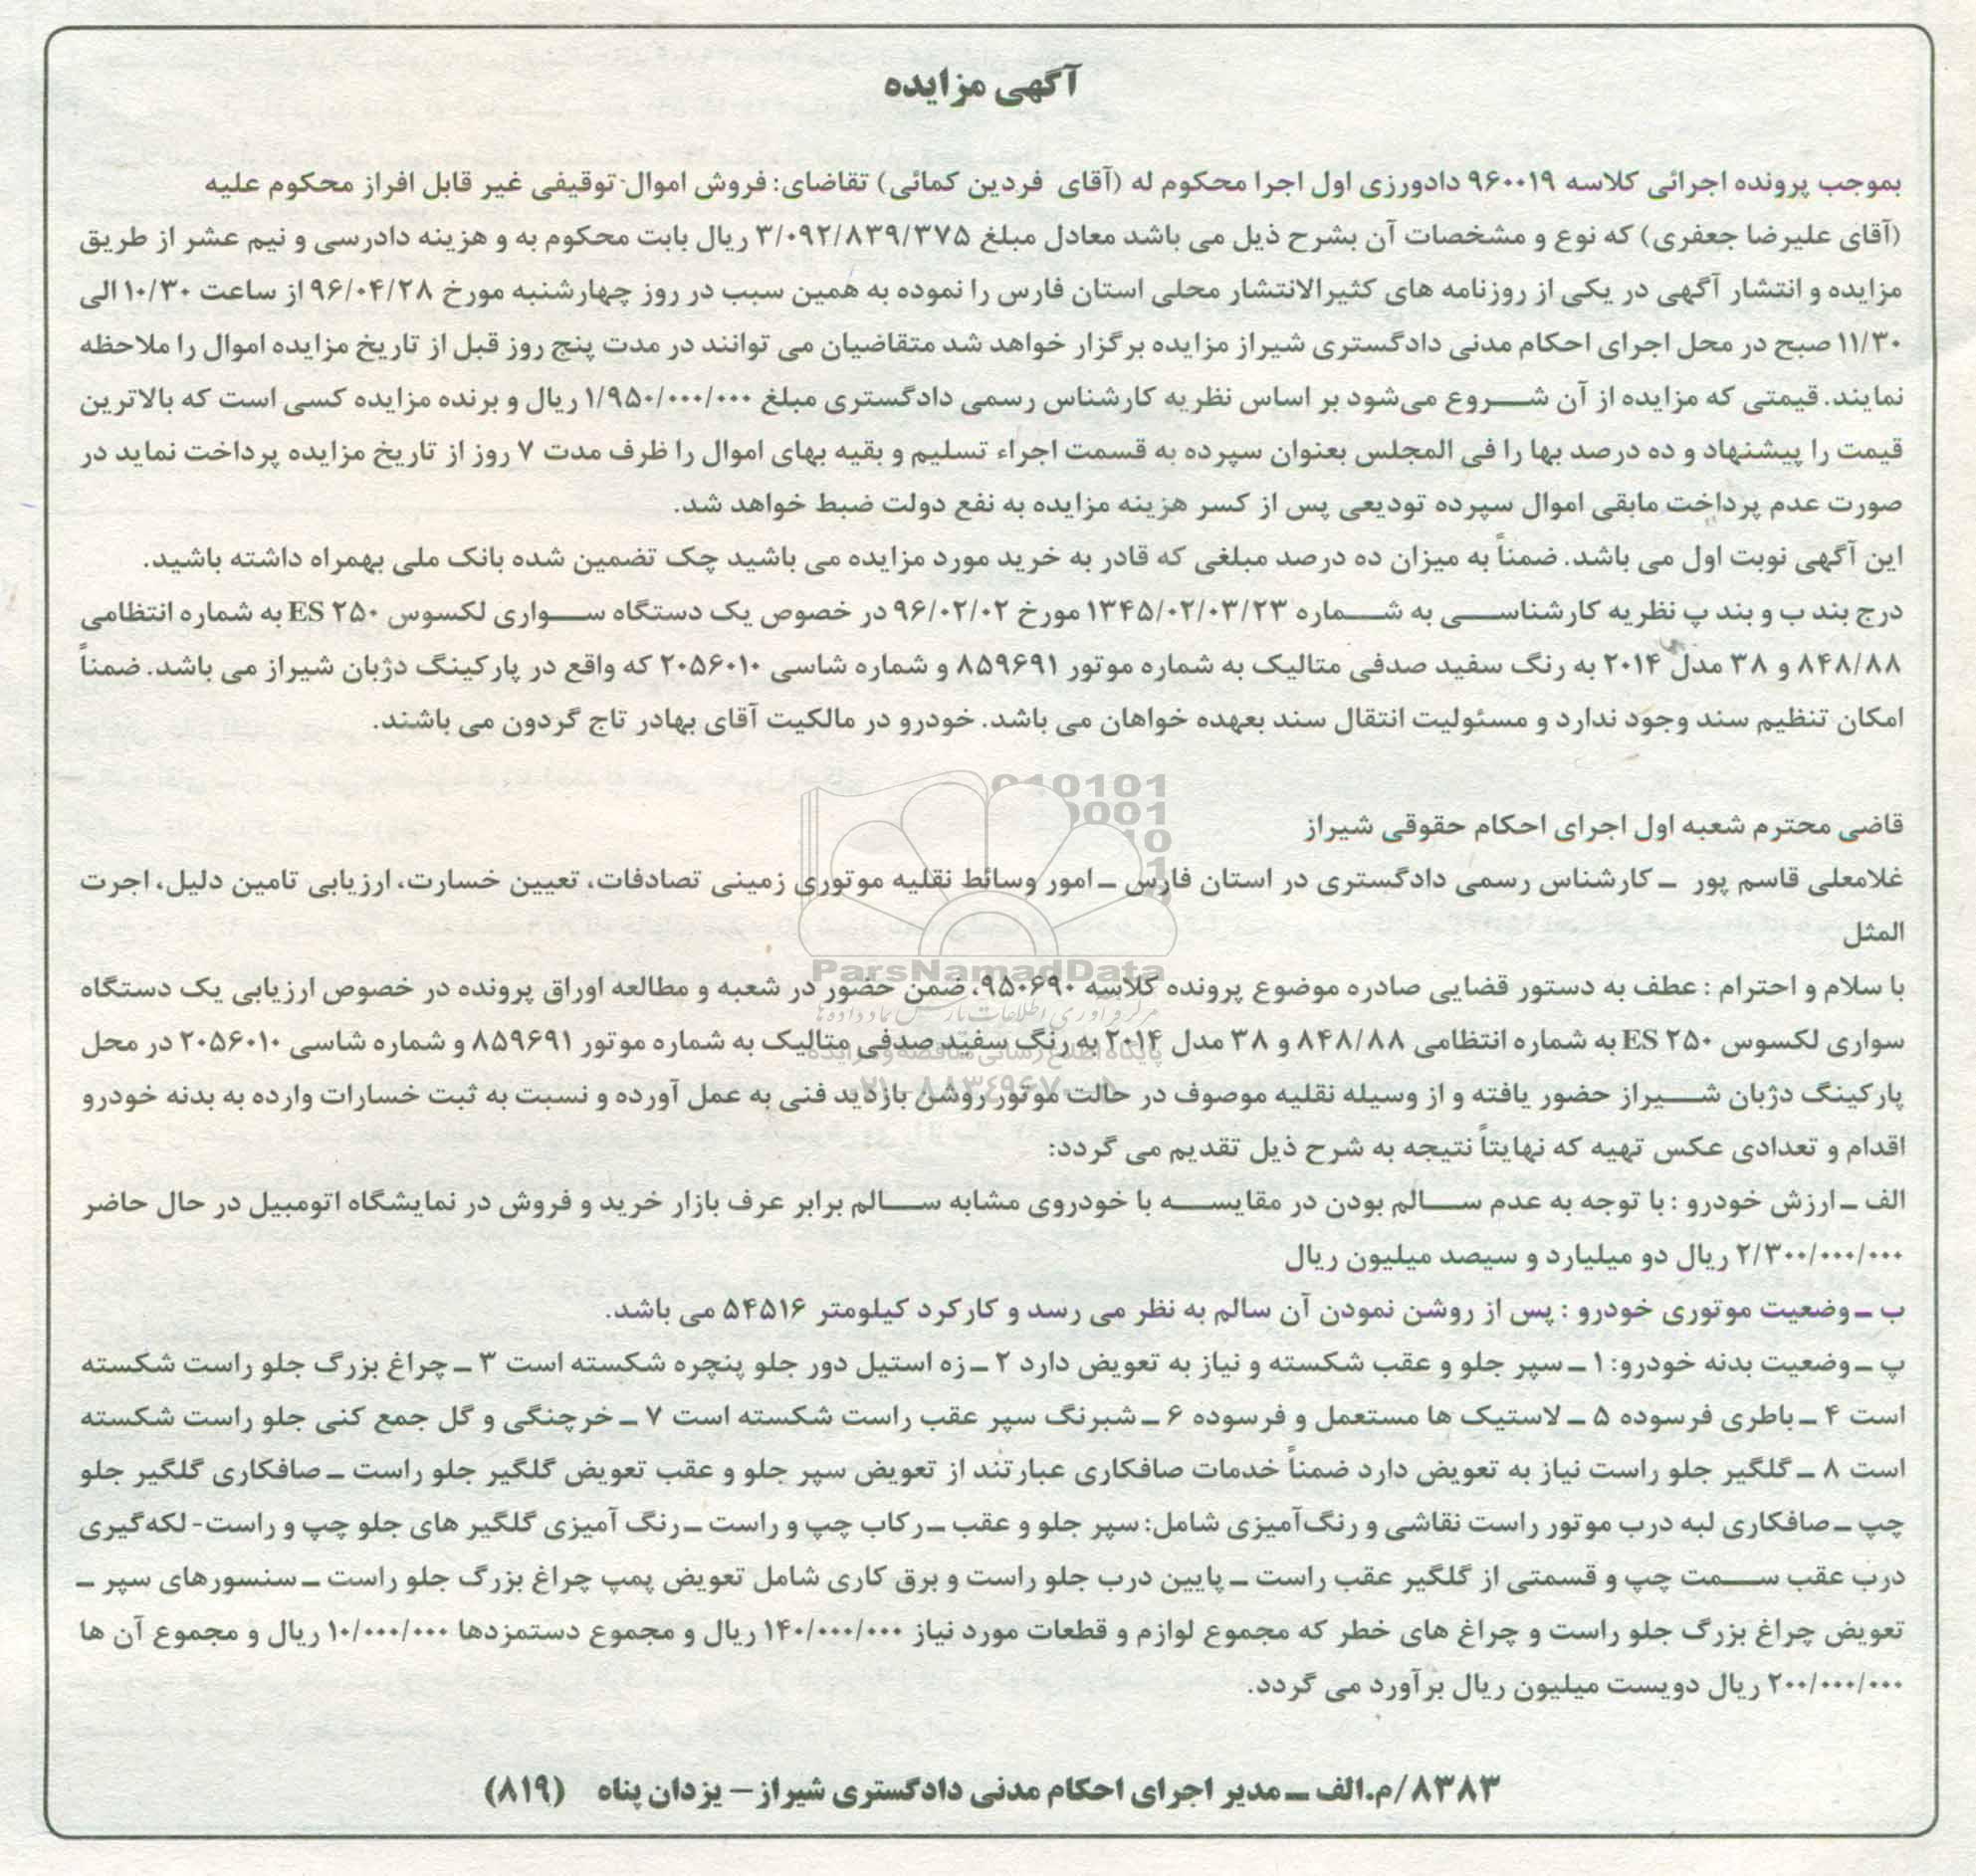 آگهی مزایده
بموجب پرونده اجرائی کلاسه ۹۶۰۰۱۹ دادورزی اول اجرا محکوم له (آقای فردین کمائی) تقاضای: فروش اموال توقیفی غیر قابل افراز محکوم علیه
(آقای علیرضا جعفری) که نوع و مشخصات آن بشرح ذیل می باشد معادل مبلغ ۳/۰۹۲/۸۳۹/۳۷۵ ریال بابت محکوم به و هزینه دادرسی و نیم عشر از طریق
مزایده و انتشار آگهی در یکی از روزنامه های کثیرالانتشار محلی استان فارس را نموده به همین سبب در روز چهارشنبه مورخ ۹۶/۰۴/۲۸ از ساعت ۱۰/۳۰ الی
۱۱/۳۰ صبح در محل اجرای احکام مدنی دادگستری شیراز مزایده برگزار خواهد شد متقاضیان می توانند در مدت پنج روز قبل از تاریخ مزایده اموال را ملاحظه
نمایند. قیمتی که مزایده از آن شروع می‌شود بر اساس نظریه کارشناس رسمی دادگستری مبلغ ۱/۹۵۰/۰۰۰/۰۰۰ ریال و برنده مزایده کسی است که بالاترین
قیمت را پیشنهاد و ده درصد بها را فی المجلس بعنوان سپرده به قسمت اجراء تسلیم و بقیه بهای اموال را ظرف مدت ۷ روز از تاریخ مزایده پرداخت نماید در
صورت عدم پرداخت مابقی اموال سپرده تودیعی پس از کسر هزینه مزایده به نفع دولت ضبط خواهد شد.
این آگهی نوبت اول می باشد. ضمناً به میزان ده درصد مبلغی که قادر به خرید مورد مزایده می باشید چک تضمین شده بانک ملی بهمراه داشته باشید.
درج بند ب و بند پ نظریه کارشناسی به شماره ۱۳۴۵/۰۲/۰۳/۲۳ مورخ ۹۶/۰۲/۰۲ در خصوص یک دستگاه سواری لکسوس ES ۲۵۰ به شماره انتظامی
۸۴۸/۸۸ و ۳۸ مدل ۲۰۱۴ به رنگ سفید صدفی متالیک به شماره موتور ۸۵۹۶۹۱ و شماره شاسی ۲۰۵۶۰۱۰ که واقع در پارکینگ دژبان شیراز می باشد. ضمناً
امکان تنظیم سند وجود ندارد و مسئولیت انتقال سند بعهده خواهان می باشد. خودرو در مالکیت آقای بهادر تاج گردون می باشند.
قاضی محترم شعبه اول اجرای احکام حقوقی شیراز
غلامعلی قاسم پور ـ کارشناس رسمی دادگستری در استان فارس ـ امور وسائط نقلیه موتوری زمینی تصادفات، تعیین خسارت، ارزیابی تامین دلیل، اجرت
المثل
با سلام و احترام : عطف به دستور قضایی صادره موضوع پرونده کلاسه ۹۵۰۶۹۰، ضمن حضور در شعبه و مطالعه اوراق پرونده در خصوص ارزیابی یک دستگاه
سواری لکسوس ES ۲۵۰ به شماره انتظامی ۸۴۸/۸۸ و ۳۸ مدل ۲۰۱۴ به رنگ سفید صدفی متالیک به شماره موتور ۸۵۹۶۹۱ و شماره شاسی ۲۰۵۶۰۱۰ در محل
پارکینگ دژبان شیراز حضور یافته و از وسیله نقلیه موصوف در حالت موتور روشن بازدید فنی به عمل آورده و نسبت به ثبت خسارات وارده به بدنه خودرو
اقدام و تعدادی عکس تهیه که نهایتاً نتیجه به شرح ذیل تقدیم می گردد:
الف ـ ارزش خودرو : با توجه به عدم سالم بودن در مقایسه با خودروی مشابه سالم برابر عرف بازار خرید و فروش در نمایشگاه اتومبیل در حال حاضر
۲/۳۰۰/۰۰۰/۰۰۰ ریال دو میلیارد و سیصد میلیون ریال
ب ـ وضعیت موتوری خودرو : پس از روشن نمودن آن سالم به نظر می رسد و کارکرد کیلومتر ۵۴۵۱۶ می باشد.
پ ـ وضعیت بدنه خودرو: ۱ ـ سپر جلو و عقب شکسته و نیاز به تعویض دارد ۲ ـ زه استیل دور جلو پنجره شکسته است ۳ ـ چراغ بزرگ جلو راست شکسته
است ۴ ـ باطری فرسوده ۵ ـ لاستیک ها مستعمل و فرسوده ۶ ـ شبرنگ سپر عقب راست شکسته است ۷ ـ خرچنگی و گل جمع کنی جلو راست شکسته
است ۸ ـ گلگیر جلو راست نیاز به تعویض دارد ضمناً خدمات صافکاری عبارتند از تعویض سپر جلو و عقب تعویض گلگیر جلو راست ـ صافکاری گلگیر جلو
چپ ـ صافکاری لبه درب موتور راست نقاشی و رنگ‌آمیزی شامل: سپر جلو و عقب ـ رکاب چپ و راست ـ رنگ آمیزی گلگیر های جلو چپ و راست- لکه‌گیری
درب عقب سمت چپ و قسمتی از گلگیر عقب راست ـ پایین درب جلو راست و برق کاری شامل تعویض پمپ چراغ بزرگ جلو راست ـ سنسورهای سپر ـ
تعویض چراغ بزرگ جلو راست و چراغ های خطر که مجموع لوازم و قطعات مورد نیاز ۱۴۰/۰۰۰/۰۰۰ ریال و مجموع دستمزدها ۱۰/۰۰۰/۰۰۰ ریال و مجموع آن ها
۲۰۰/۰۰۰/۰۰۰ ریال دویست میلیون ریال برآورد می گردد.
۸۳۸۳/م.الف ـ مدیر اجرای احکام مدنی دادگستری شیراز – یزدان پناه (۸۱۹)
ParsNamadData